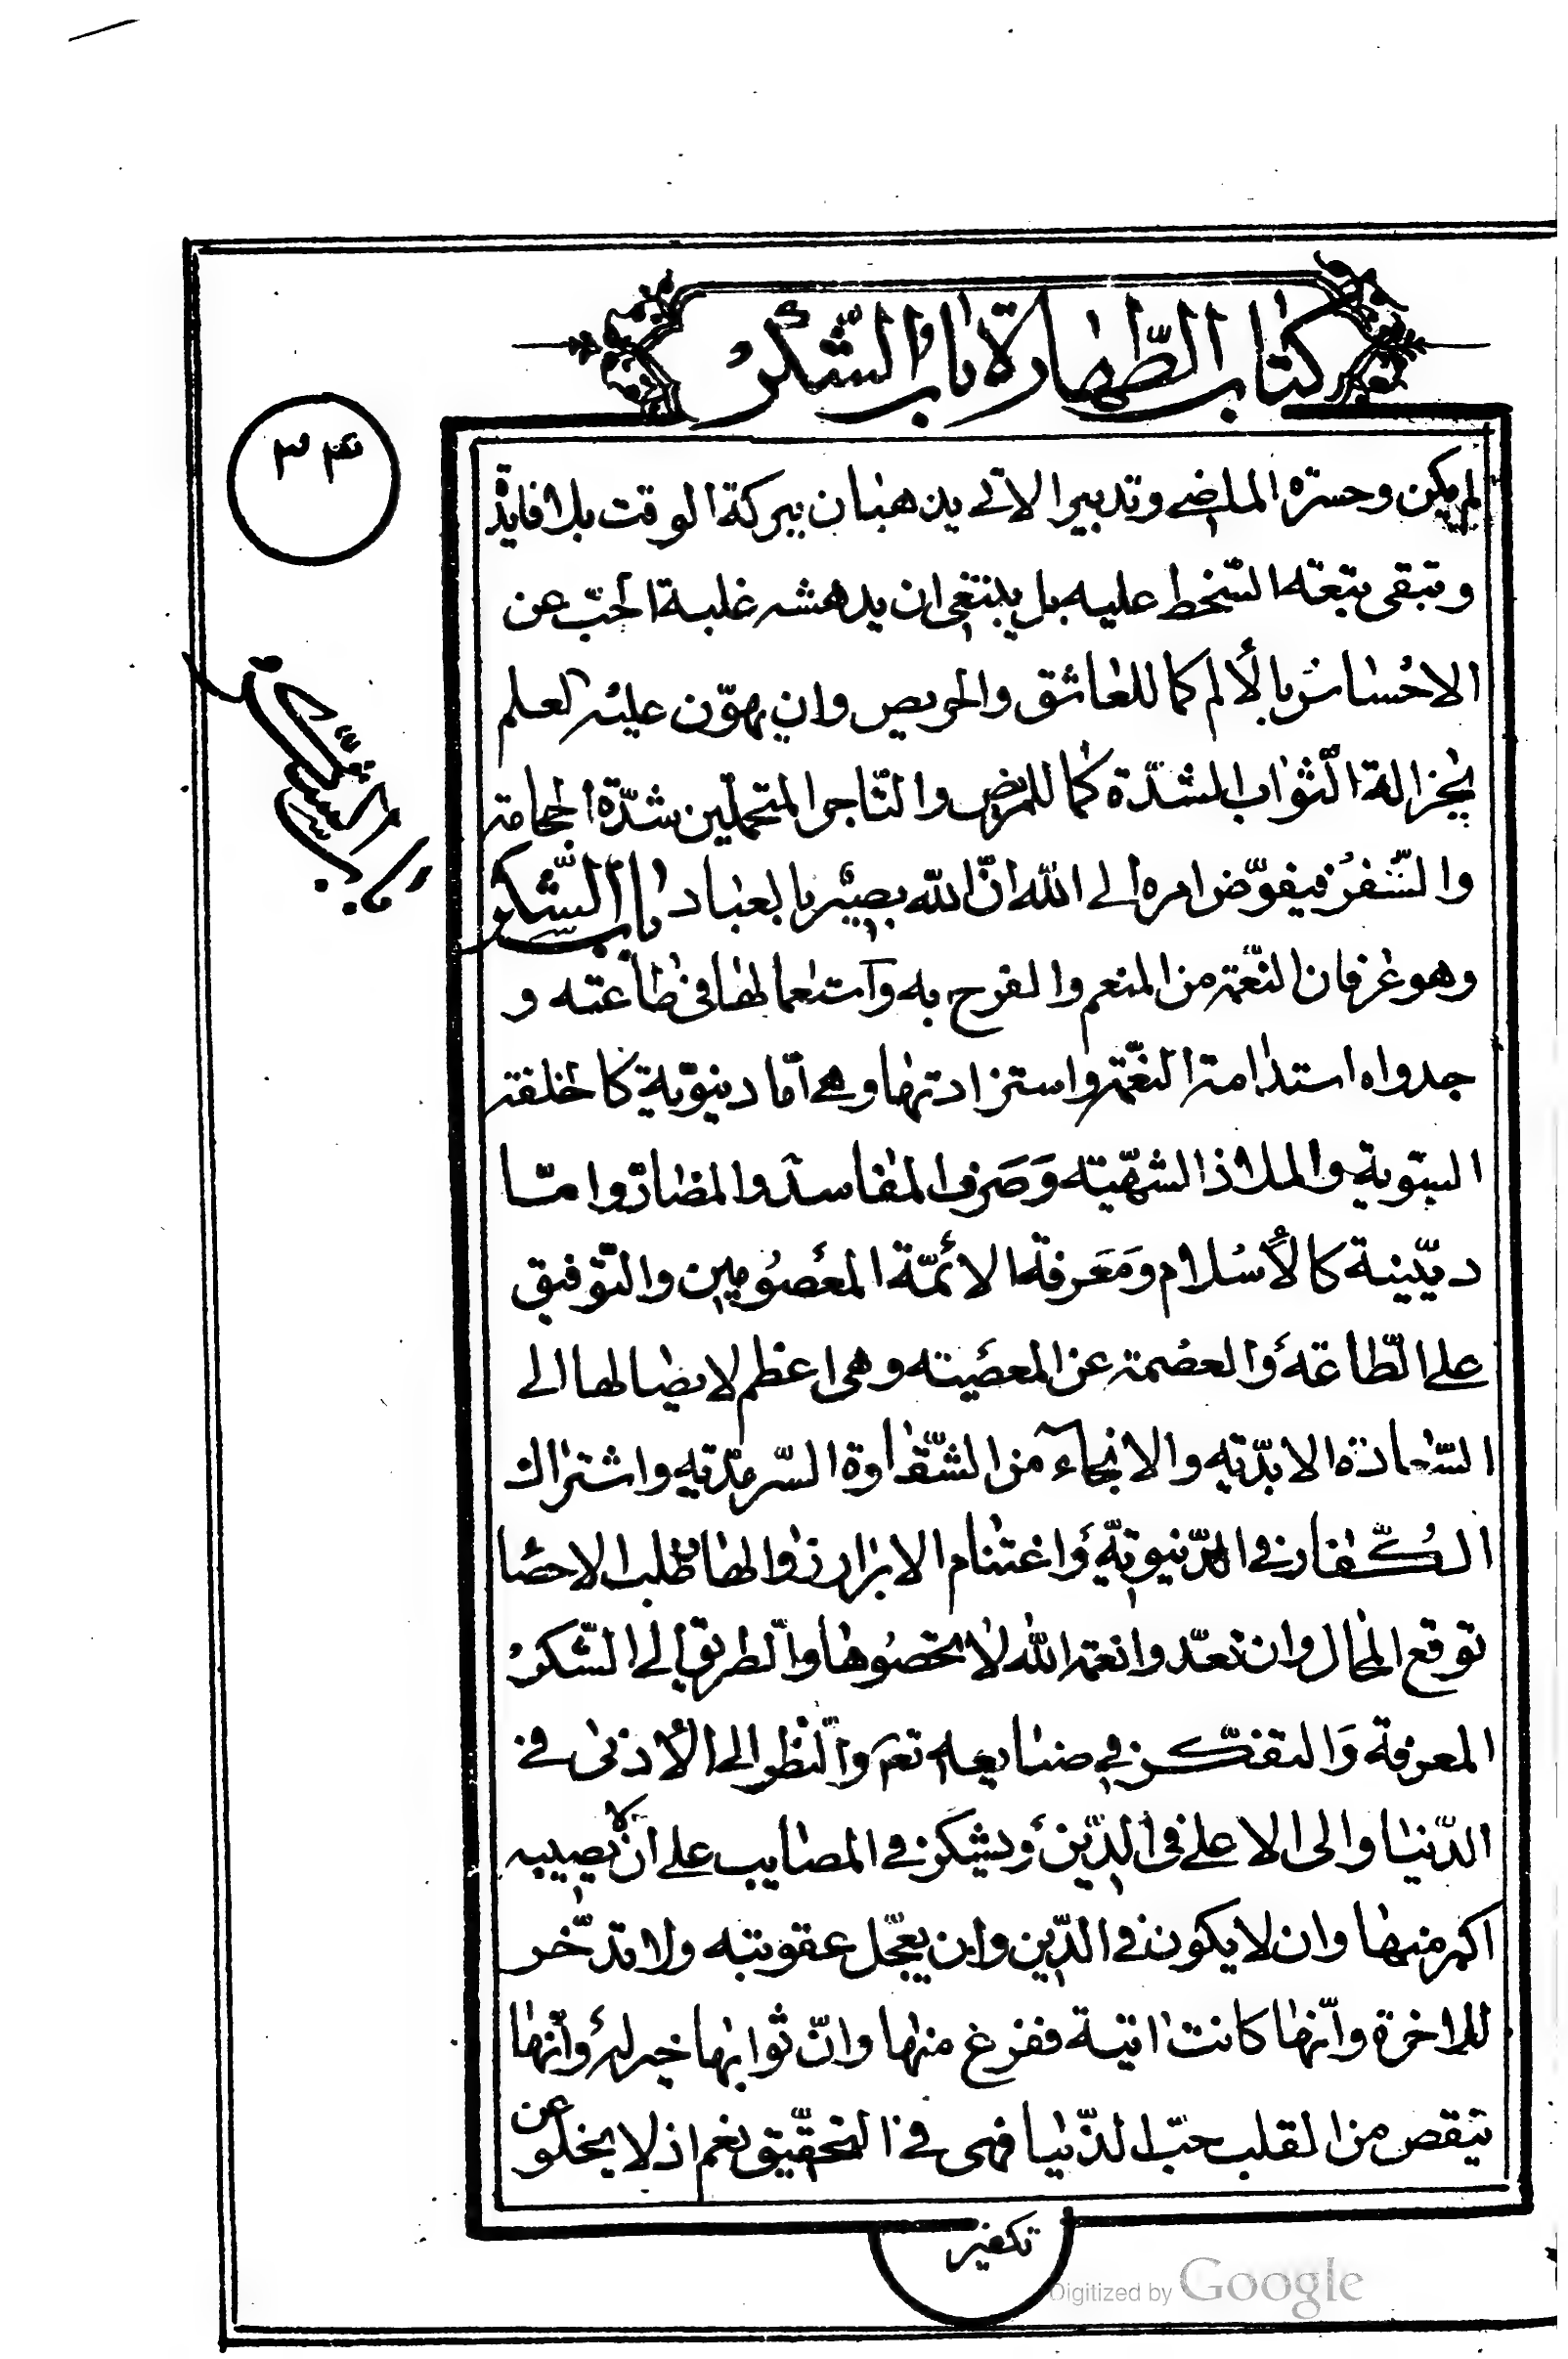 كتاب الطّهارة باب الشّكر
٣٤
لم يكن وحسرة الماضي وتدبير الاتي يذهبان ببركة الوقت بلا فايدة
وتبقى تبعة السّخط عليه بل ينبغي ان يدهشه غلبة الحبّ عن
الاحساس بالألم كما للعاشق والحريص وان يهوّن عليه العلم
بجزالة الثّواب الشدّة كما للمريض والتّاجر المتحمّلين شدّة الحجامة
والسّفر فيفوّض امره الى اللّه انّ اللّه بصير بالعباد باب الشّكر
باب الشّكر
وهو عرفان النّعمة من المنعم والفرح به واستعمالها في طاعته و
جدواه استدامة النّعمة واستزادتها وهي امّا دنيويّة كالخلقة
السّويّة والملاذ الشهيّة وصرف المفاسد والمضارّ وامّا
دينيّة كالأسلام ومعرفة الائمّة المعصومين والتّوفيق
على الطّاعة والعصمة عن المعصية وهي اعظم لايصالها الى
السّعادة الابديّة والانجاء من الشّقاوة السّرمديّة واشتراك
الكفّار في الدّنيويّة واغتنام الابرار زوالها فطلب الاحصا
توقع المحال وان تعدّوا نعمة اللّه لا تحصوها والطريق الى الشّكر
المعرفة والتفكّر في صنايعه تعم والنّظر الى الأدنى في
الدّنيا والى الاعلى في الدّين ويشكر في المصايب على ان لا يصيبه
اكبر منها وان لا يكون في الدّين وان يعجّل عقوبته ولا تدّخر
للاخرة وانّها كانت اتية ففرغ منها وانّ ثوابها خير له وأنّها
تنقص من القلب حبّ الدّنيا فهي في التّحقيق نعم اذ لا يخلو عن
تكفير
Digitized by Google